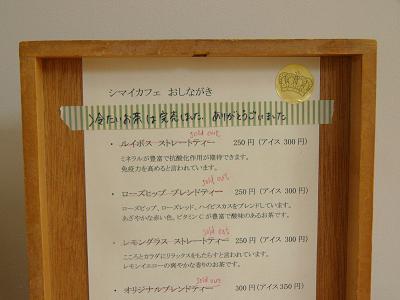 シマイカフェ おしながき
冷たいお茶は完売しました。ありがとうございました
sold out
・ルイボス ストレートティー 250円(アイス 300円)
ミネラルが豊富で抗酸化作用が期待できます。
免疫力を高めると言われています。
sold out
・ローズヒップ ブレンドティー 250円(アイス 300円)
ローズヒップ、ローズレッド、ハイビスカスをブレンドしています。
あざやかな赤い色、ビタミンCが豊富で酸味のあるお茶です。
sold out
・レモングラス ストレートティー 250円(アイス 300円)
こころとカラダにリラックスをもたらすと言われています。
レモンイエローの爽やかな香りのお茶です。
sold out
・オリジナルブレンドティー 300円(アイス 350円)